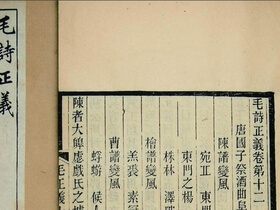 毛詩正義
毛詩正義卷第十二
唐國子祭酒曲阜
陳譜變風
宛丘 東門
東門之楊
株林 澤
檜譜變風
羔裘 素冠
曹譜變風
蜉蝣 候人
陳者大皞虙戲氏之
毛正義